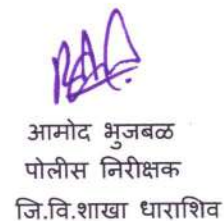 आमोद भुजबळ
पोलीस निरीक्षक
जि.वि.शाखा धाराशिव